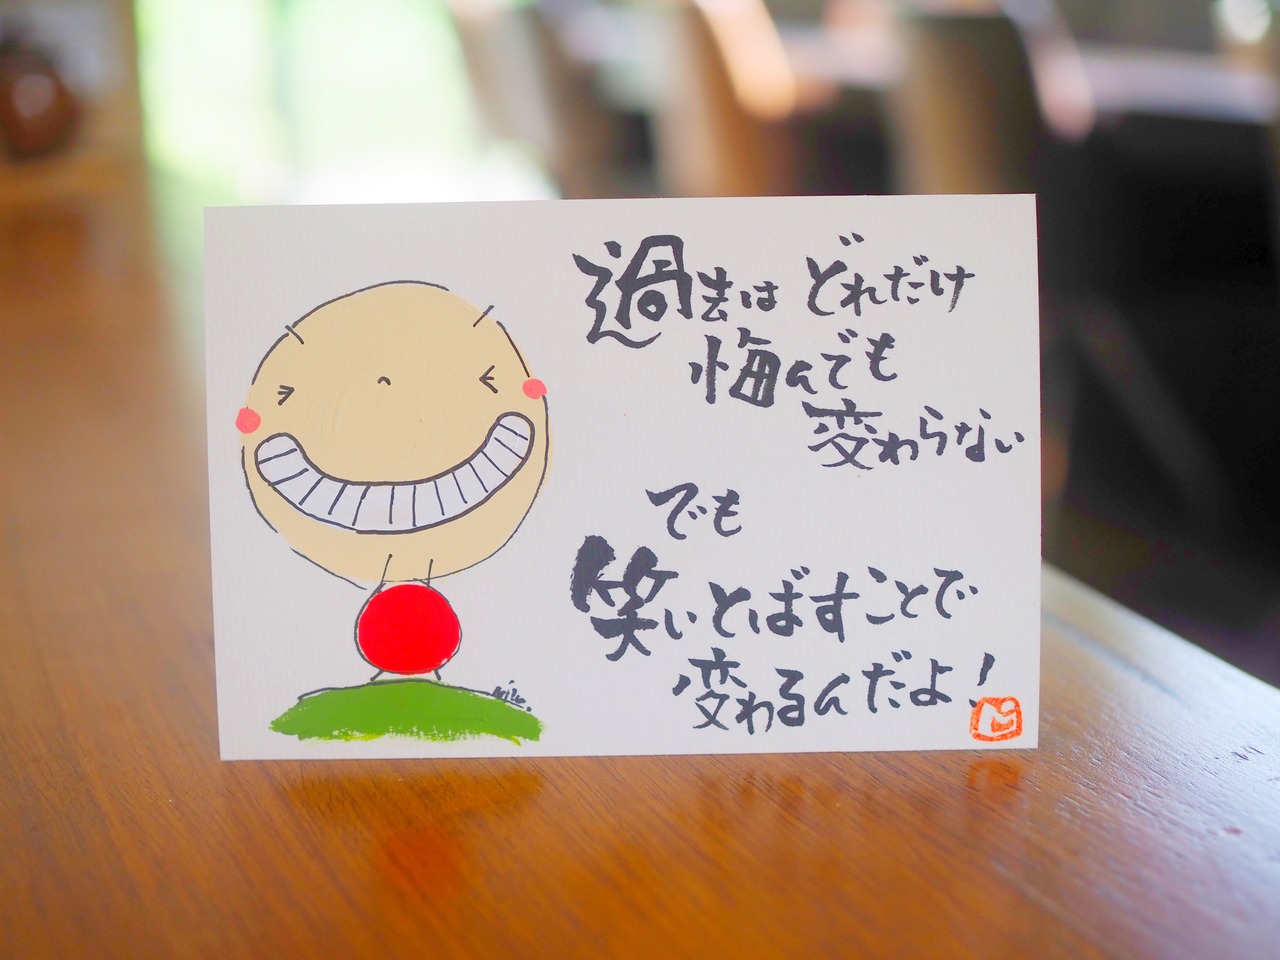 過去は どれだけ
悔んでも
変わらない
でも
笑いとばすことで
変わるんだよ!